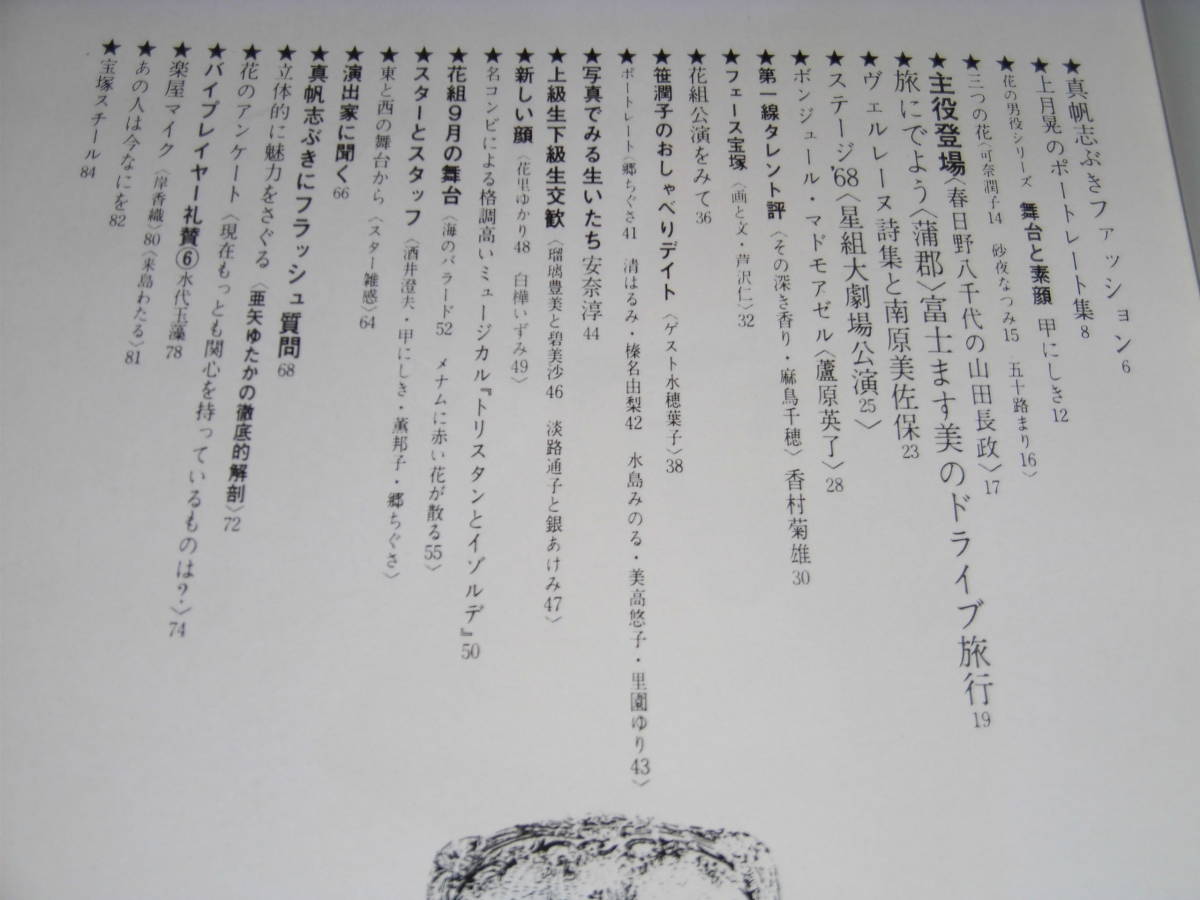 ★真帆志ぶきファッション 6
★上月晃のポートレート集 8
★花の男役シリーズ 舞台と素顔 甲にしき 12
★三つの花〈可奈潤子14 砂夜なつみ15 五十路まり16〉
★主役登場〈春日野八千代の山田長政〉17
★旅にでよう〈蒲郡〉富士ます美のドライブ旅行 19
★ヴェルレーヌ詩集と南原美佐保 23
★ステージ'68〈星組大劇場公演〉25
★ボンジュール・マドモアゼル〈蘆原英了〉28
★第一線タレント評〈その深き香り・麻鳥千穂〉香村菊雄 30
★フェース宝塚〈画と文・芦沢仁〉32
★花組公演をみて 36
★笹潤子のおしゃべりデイト〈ゲスト水穂葉子〉38
★ポートレート〈郷ちぐさ41 清はるみ・榛名由梨42 水島みのる・美高悠子・里園ゆり43〉
★写真でみる生いたち 安奈淳 44
★上級生下級生交歓〈瑠璃豊美と碧美沙46 淡路通子と銀あけみ47〉
★新しい顔〈花里ゆかり48 白樺いずみ49〉
★名コンビによる格調高いミュージカル『トリスタンとイゾルデ』50
★花組9月の舞台〈海のバラード52 メナムに赤い花が散る55〉
★スターとスタッフ〈酒井澄夫・甲にしき・薫邦子・郷ちぐさ〉
★東と西の舞台から〈スター雑感〉64
★演出家に聞く 66
★真帆志ぶきにフラッシュ質問 68
★立体的に魅力をさぐる〈亜矢ゆたかの徹底的解剖〉72
★花のアンケート〈現在もっとも関心を持っているものは?〉74
★バイプレイヤー礼賛⑥水代玉藻 78
★楽屋マイク〈岸香織〉80〈来島わたる〉81
★あの人は今なにを 82
★宝塚スチール 84